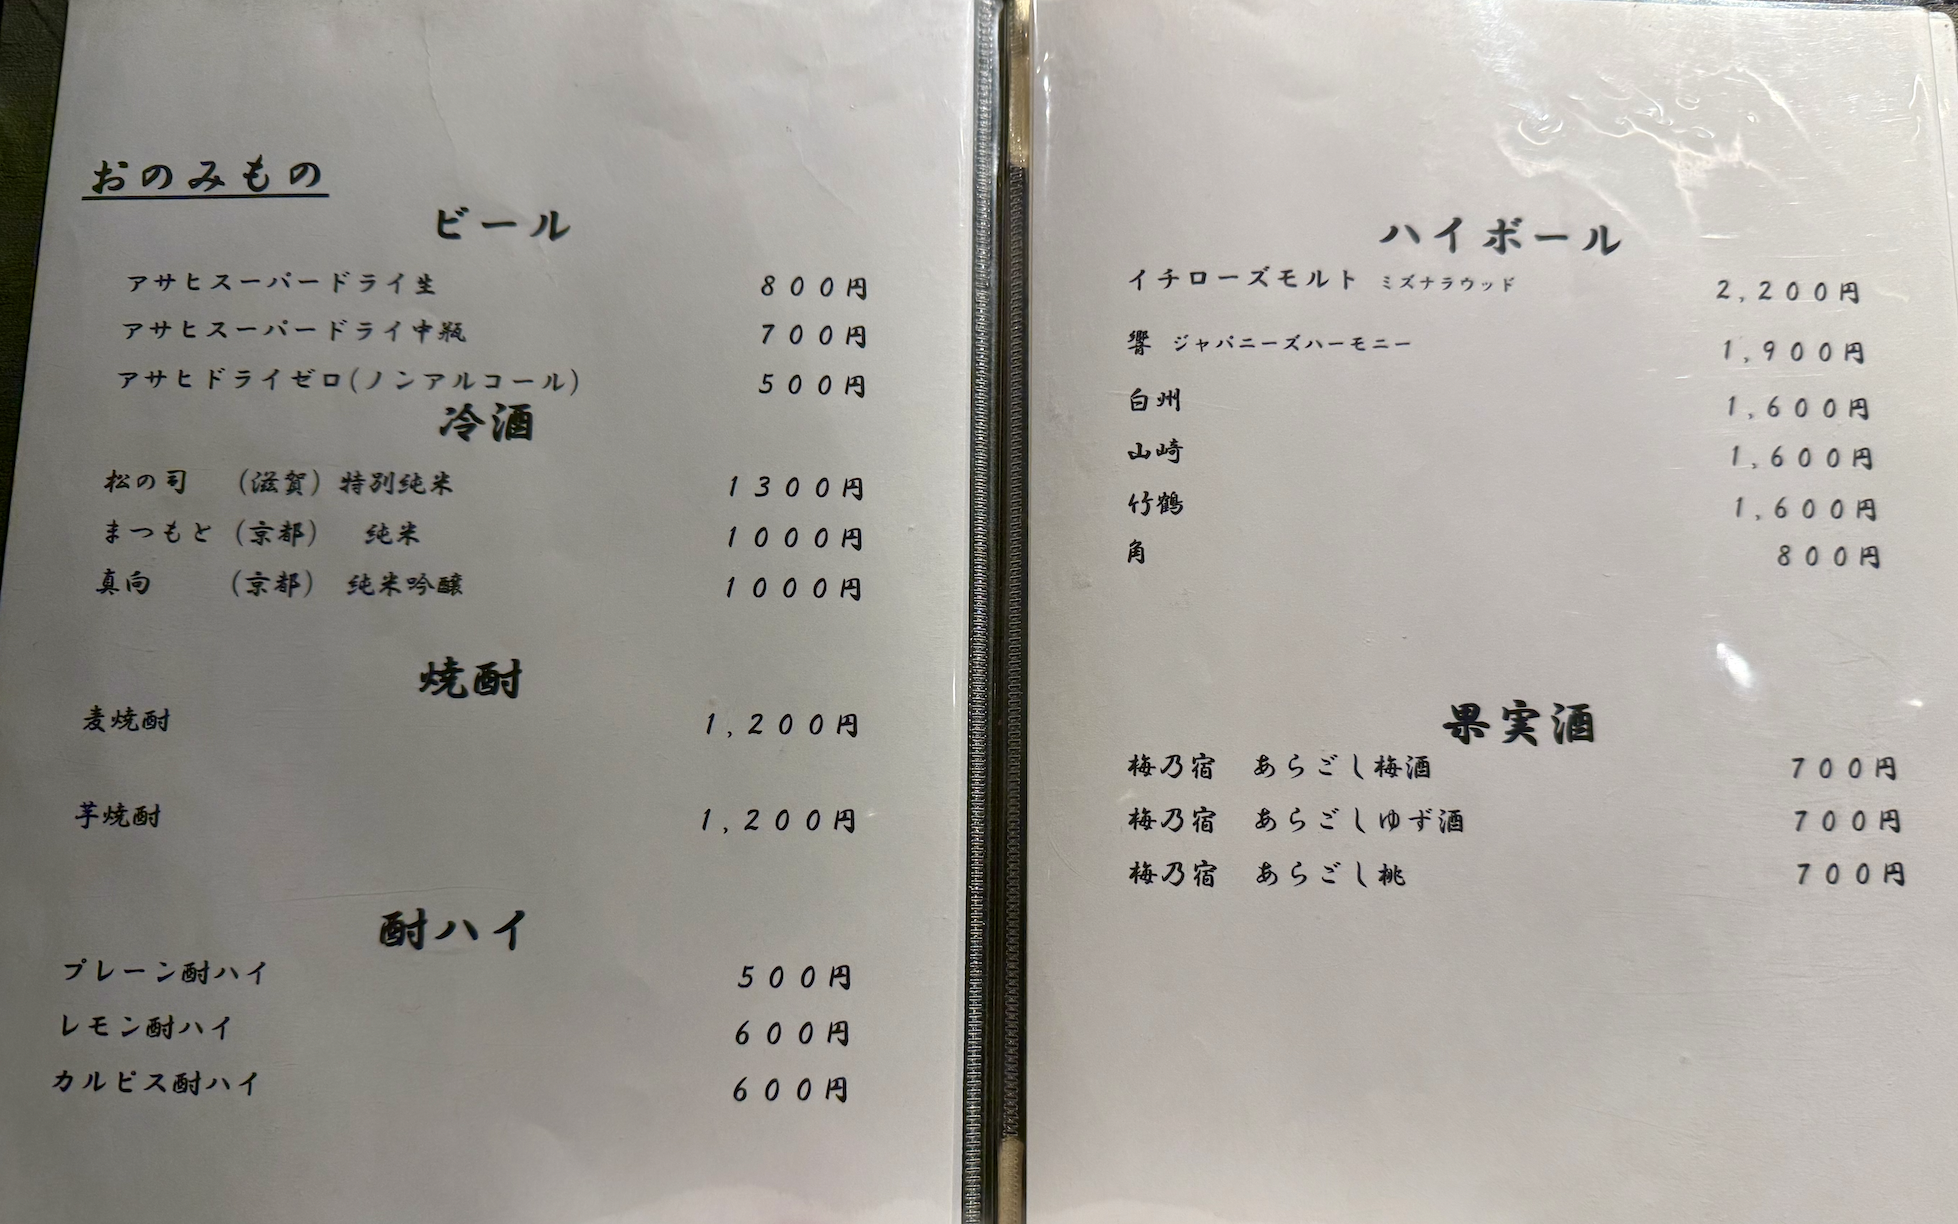 おのみもの
ビール
アサヒスーパードライ生 800円
アサヒスーパードライ中瓶 700円
アサヒドライゼロ(ノンアルコール) 500円
冷酒
松の司 (滋賀) 特別純米 1300円
まつもと (京都) 純米 1000円
真向 (京都) 純米吟醸 1000円
焼酎
麦焼酎 1,200円
芋焼酎 1,200円
酎ハイ
プレーン酎ハイ 500円
レモン酎ハイ 600円
カルピス酎ハイ 600円
ハイボール
イチローズモルト ミズナラウッド 2,200円
響 ジャパニーズハーモニー 1,900円
白州 1,600円
山崎 1,600円
竹鶴 1,600円
角 800円
果実酒
梅乃宿 あらごし梅酒 700円
梅乃宿 あらごしゆず酒 700円
梅乃宿 あらごし桃 700円